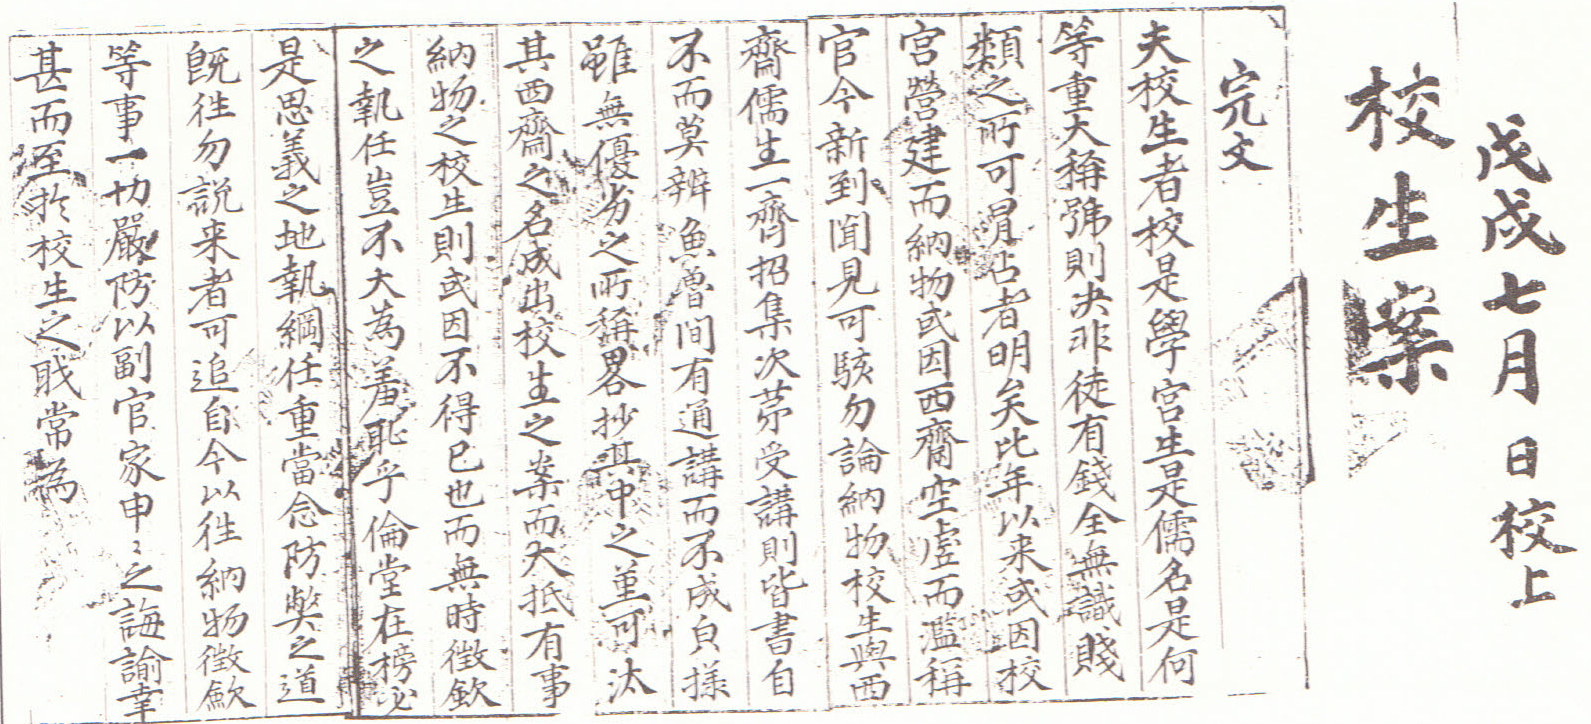 戊戌七月 日校上
校生案
完文
夫校生者校是學宮生是儒名是何
等重大稱號則决非徒有錢全無識賤
類之所可冒占者明矣比年以来或因校
宮營建而納物或因西齋空虛而濫稱
官今新到聞見可駭勿論納物校生與西
齋儒生一齊招集次苐受講則皆書自
不而莫辨魚魯間有通講而不成貟様
雖無優劣之所稱畧抄其中之堇可汰
其西齋之名成出校生之案而大抵有事
納物之校生則或因不得已也而無時徵歛
之執任豈不大為羞恥乎倫堂在榜必
是思義之地執綱任重當念防弊之道
旣徃勿説来者可追自今以徃納物徵歛
等事一切嚴防以副官家申〻之誨諭幸
甚而至扵校生之戝常為